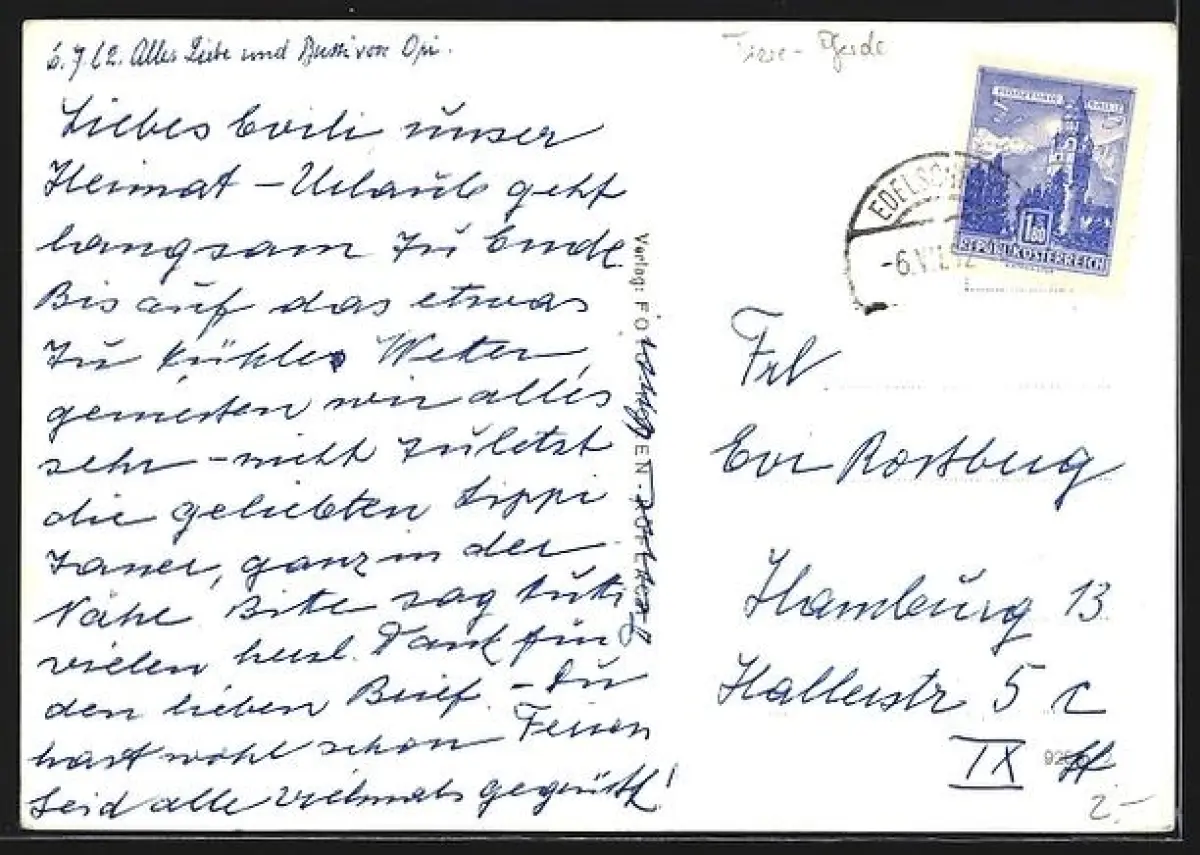 6.7.62. Alles Liebe und Bussi von Opi.
Liebes Evili unser
Heimat – Urlaub geht
langsam zu Ende
Bis auf das etwas
zu kühle Wetter,
geniesten wir alles
sehr – nicht zuletzt
die geliebten Lippi
zaner, ganz in der
Nähe. Bitte sag
vielen herzl. Dank für
den lieben Brief. – Du
hast wohl schon Ferien
Seid alle vielmals gegrüßt!
Verlag: FO
Pferde
EDELSCH
-6.VII.62
1.80
REPUBLIK ÖSTERREICH
Frl
Evi Rostberg
Hamburg 13
Hallerstr 5 c
IX
2.-